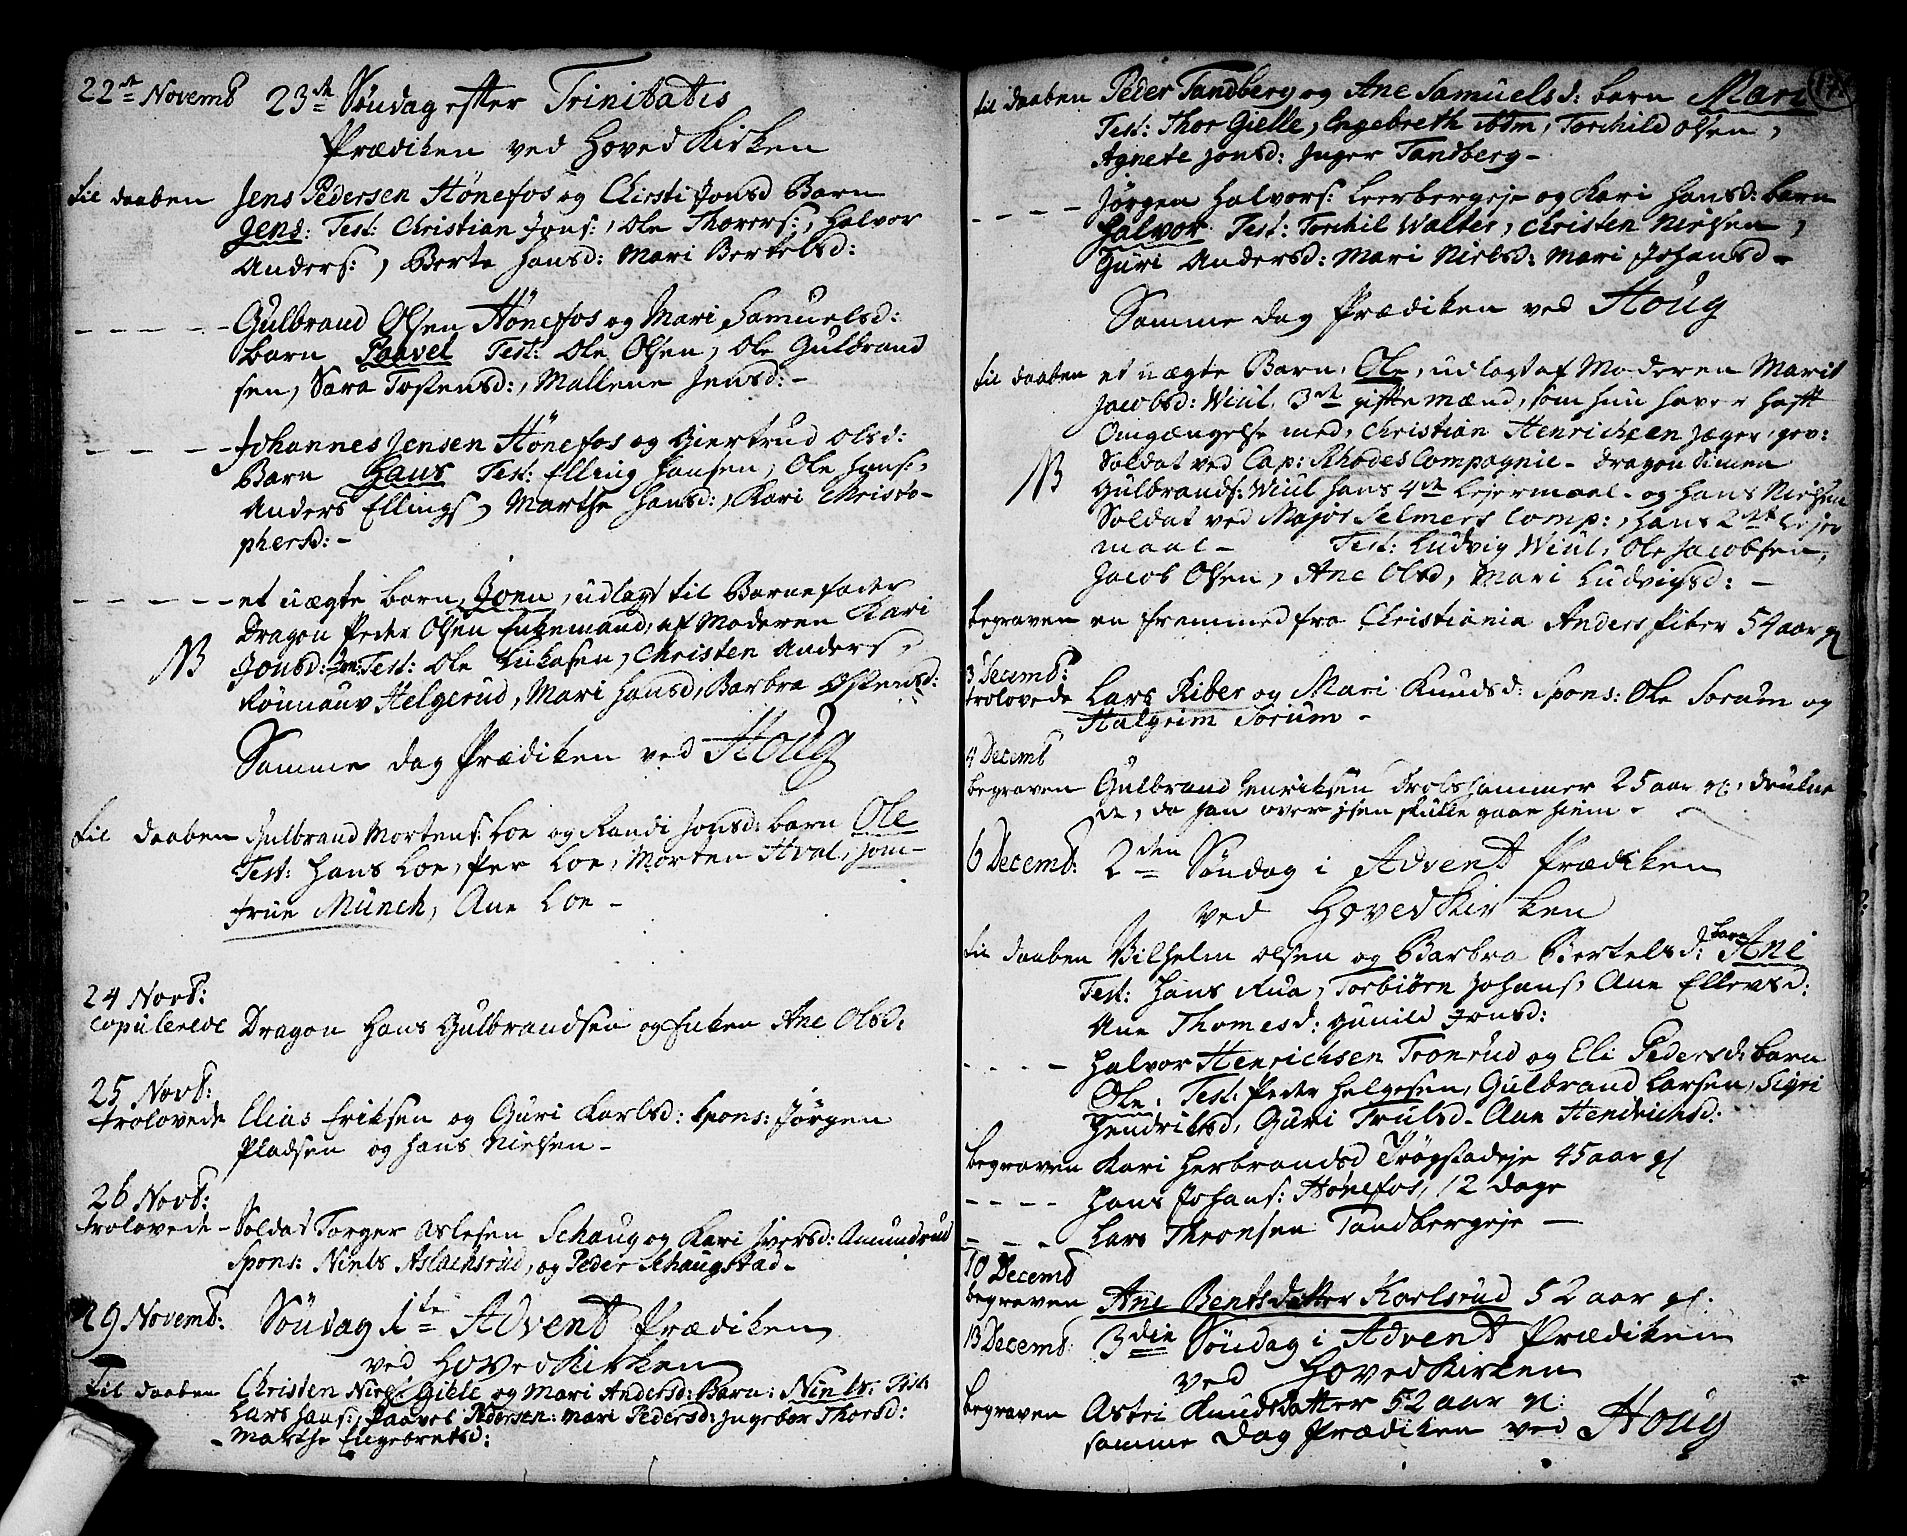 22de Novemb 23de Søndag efter Trinitatis
Prædiken ved Hoved Kirken
til daaben Jens Pedersen Hønefos og Chirsti Jonsd Barn
Jens: Test: Christian Jons:, Ole Thorers:, Halvor
Anders:, Berte Hansd: Mari Bertelsd:
- - - - Gulbrand Olsen Hønefos og Mari Samuelsd:
barn Paavel Test: Ole Olsen, Ole Gulbrand
sen, Sara Tostensd:, Mallene Jensd: -
- - - - Johannes Jensen Hønefos og Giertrud Olsd:
Barn Hans Test: Elling Hansen, Ole Hans:,
Anders Ellings, Marthe Hansd:, Kari Christo-
phersd: -
- - - - et uægte barn, Joen, udlagt til Barnefader
Dragon Peder Olsen Enkemand, af Moderen Kari
NB Jonsd: Test: Ole Lukasen, Christen Anders,
Rønnauv Helgerud, Mari Hansd, Barbra Ostensd:
Samme dag Prædiken ved Houg
til daaben Gulbrand Mortens: Loe og Randi Jonsd: barn Ole
Test: Hans Loe, Per Loe, Morten Hval, Jom-
frue Münch, Ane Loe -
24 Novb:
Copulerede Dragon Hans Gulbrandsen og Enken Ane Olsd:
25 Novb:
trolovede Elias Eriksen og Guri Karlsd: Spons: Jørgen
Pladsen og Hans Nielsen -
26 Novb:
trolovede - Soldat Torger Aslesen Schaug og Kari Iversd: Amundrud
Spons: Niels Aslachsrud, og Peder Schaugstad -
29 Novemb: Søndag 1te Advent Prædiken
ved Hovedkirken
til daaben Christen Niels: Gielle og Mari Andersd: Barn: Niels: Test:
Lars Hans:, Paavel Pedersen: Mari Pedersd: Ingebor Thorsd:
- Marthe Engebretsd:
til daaben Peder Tandberg og Ane Samuelsd: barn Mari
Test: Thor Gielle, Engebreth ibdm, Torchild Olsen,
Agnete Jonsd: Inger Tandberg -
- - - - Jørgen Halvors: Leerbergeje og Kari Hansd: barn
Halvor Test: Torchil Walter, Christen Nielsen,
Guri Andersd: Mari Nielsd: Mari Johansd -
Samme dag Prædiken ved Houg
til daaben et uægte Barn, Ole, udlagt af Moderen Marit
Jacobsd: Wiul. 3de gifte mænd, som hun haver haft
Omgængelse med, Christian Henrichsen Jæger, gev:
NB Soldat ved Cap: Rhodes Compagnie - Dragon Simen
Gulbrands: Wiul hans 4de Lejermaal - og Hans Nielsen
Soldat ved Major Selmers Comp:, hans 2det Lejer
maal - Test: Ludvig Wiul, Ole Jacobsen,
Jacob Olsen, Ane Olsd, Mari Ludvigsd: -
begraven en fremmed fra Christiania Anders Piber 54 aar gl
3 Decemb:
trolovede Lars Riber og Mari Knudsd: Spons: Ole Sorum og
Halgrim Sorum -
4 Decemb
begraven Gulbrand Henriksen 25 aar gl:, druckne
de, da han over Isen skulle gaae hiem -
6 Decemb: 2den Søndag i Advent Prædiken
ved Hovedkirken
til daaben Vilhelm Olsen og Barbra Bertelsd: barn Ane
Test: Hans Rua, Torbiørn Johans, Ane Ellevsd:
Ane Thomesd: Gunild Jonsd:
- - - - Halvor Henrichsen Tronrud og Eli Pedersd: barn
Ole: Test: Peder Helgesen, Gulbrand Larsen, Sigri
Hendriksd, Guri Trulsd - Ane Hendrichsd:
begraven Kari Herbrandsd Trøgstadeje 45 aar gl
- - - - Hans Johans: Hønefos, 12 dage
- - - Lars Thronsen Tandbergeje -
10 Decemb
begraven Ane Bentsdatter Karlsrud 52 aar gl.
13 Decemb 3die Søndag i Advent Prædiken
ved Hovedkirken
begraven Astri Knudsdatter 52 aar gl:
samme Dag Prædiken ved Houg